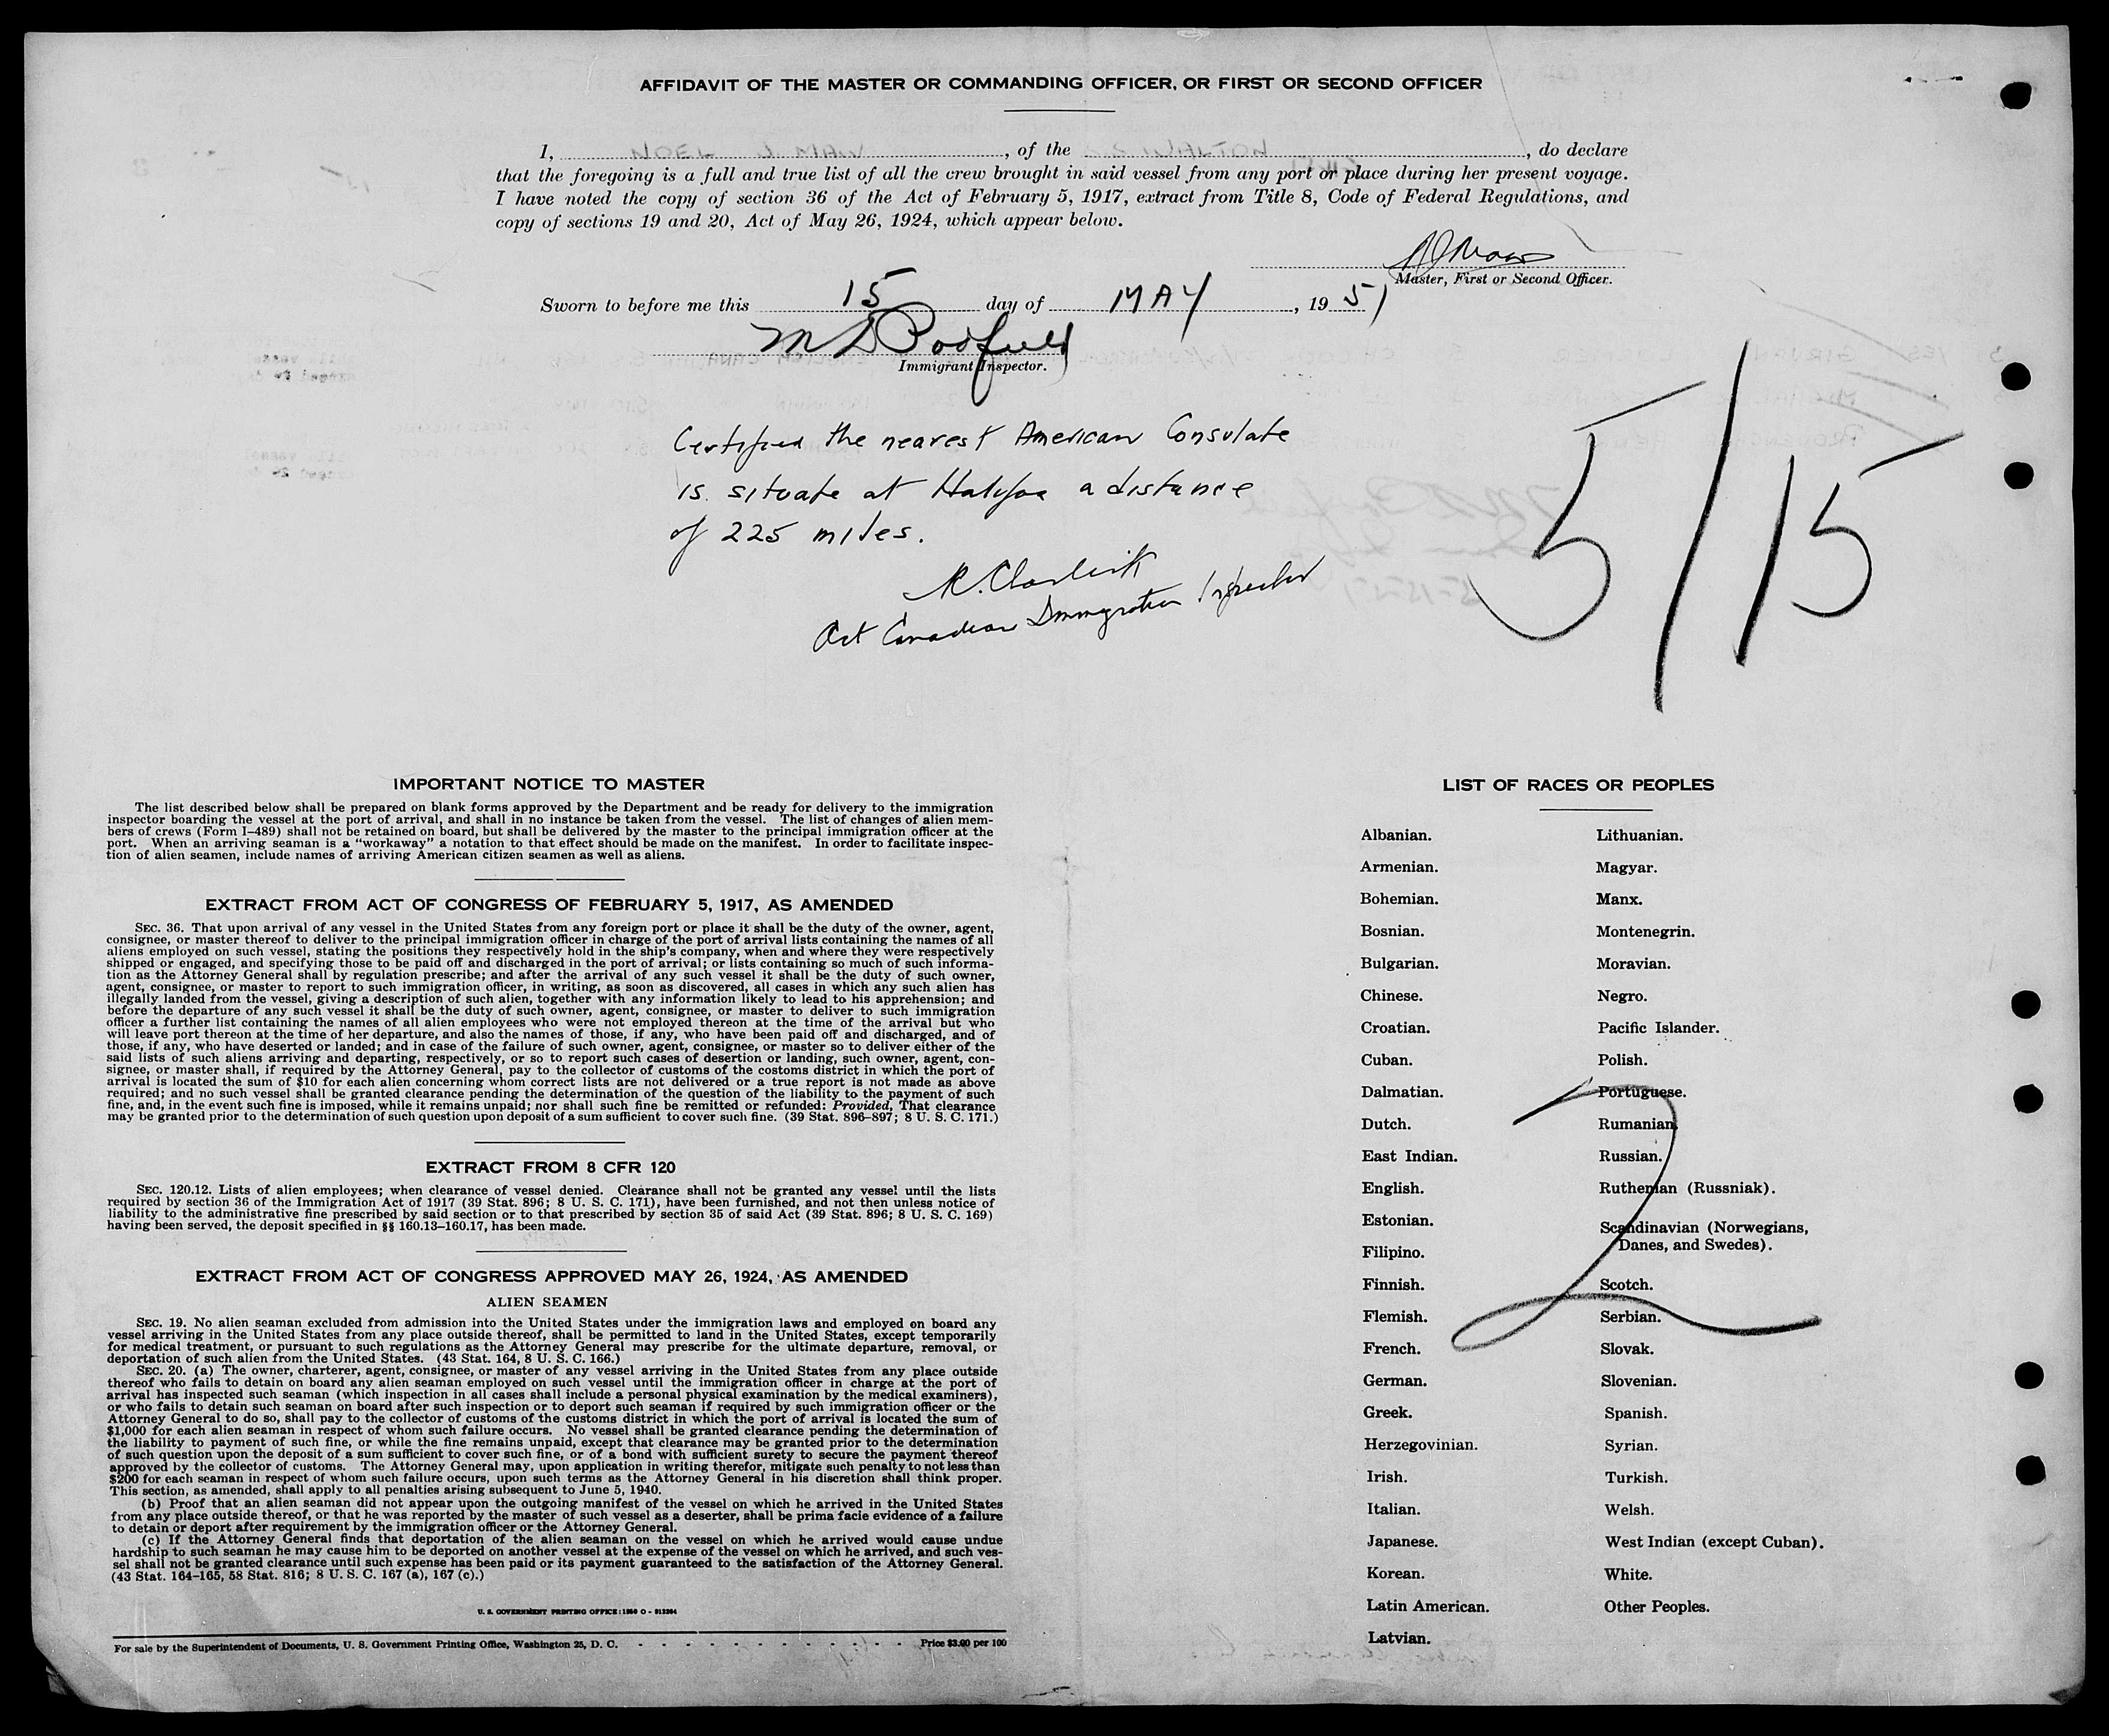 AFFIDAVIT OF THE MASTER OR COMMANDING OFFICER, OR FIRST OR SECOND OFFICER
I, , of the , do declare
that the foregoing is a full and true list of all the crew brought in said vessel from any port or place during her present voyage.
I have noted the copy of section 36 of the Act of February 5, 1917, extract from Title 8, Code of Federal Regulations, and
copy of sections 19 and 20, Act of May 26, 1924, which appear below.
Master, First or Second Officer.
Sworn to before me this 15 day of MAY, 1951
Immigrant Inspector.
Certified the nearest American Consulate
is situate at Halifax a distance
of 225 miles.
Act Canadian Immigration Inspector
5/15
IMPORTANT NOTICE TO MASTER
The list described below shall be prepared on blank forms approved by the Department and be ready for delivery to the immigration
inspector boarding the vessel at the port of arrival, and shall in no instance be taken from the vessel. The list of changes of alien mem-
bers of crews (Form I-489) shall not be retained on board, but shall be delivered by the master to the principal immigration officer at the
port. When an arriving seaman is a "workaway" a notation to that effect should be made on the manifest. In order to facilitate inspec-
tion of alien seamen, include names of arriving American citizen seamen as well as aliens.
EXTRACT FROM ACT OF CONGRESS OF FEBRUARY 5, 1917, AS AMENDED
SEC. 36. That upon arrival of any vessel in the United States from any foreign port or place it shall be the duty of the owner, agent,
consignee, or master thereof to deliver to the principal immigration officer in charge of the port of arrival lists containing the names of all
aliens employed on such vessel, stating the positions they respectively hold in the ship's company, when and where they were respectively
shipped or engaged, and specifying those to be paid off and discharged in the port of arrival; or lists containing so much of such informa-
tion as the Attorney General shall by regulation prescribe; and after the arrival of any such vessel it shall be the duty of such owner,
agent, consignee, or master to report to such immigration officer, in writing, as soon as discovered, all cases in which any such alien has
illegally landed from the vessel, giving a description of such alien, together with any information likely to lead to his apprehension; and
before the departure of any such vessel it shall be the duty of such owner, agent, consignee, or master to deliver to such immigration
officer a further list containing the names of all alien employees who were not employed thereon at the time of the arrival but who
will leave port thereon at the time of her departure, and also the names of those, if any, who have been paid off and discharged, and of
those, if any, who have deserted or landed; and in case of the failure of such owner, agent, consignee, or master so to deliver either of the
said lists of such aliens arriving and departing, respectively, or so to report such cases of desertion or landing, such owner, agent, con-
signee, or master shall, if required by the Attorney General, pay to the collector of customs of the costoms district in which the port of
arrival is located the sum of $10 for each alien concerning whom correct lists are not delivered or a true report is not made as above
required; and no such vessel shall be granted clearance pending the determination of the question of the liability to the payment of such
fine, and, in the event such fine is imposed, while it remains unpaid; nor shall such fine be remitted or refunded: Provided, That clearance
may be granted prior to the determination of such question upon deposit of a sum sufficient to cover such fine. (39 Stat. 896-897; 8 U. S. C. 171.)
EXTRACT FROM 8 CFR 120
SEC. 120.12. Lists of alien employees; when clearance of vessel denied. Clearance shall not be granted any vessel until the lists
required by section 36 of the Immigration Act of 1917 (39 Stat. 896; 8 U. S. C. 171), have been furnished, and not then unless notice of
liability to the administrative fine prescribed by said section or to that prescribed by section 35 of said Act (39 Stat. 896; 8 U. S. C. 169)
having been served, the deposit specified in §§ 160.13-160.17, has been made.
EXTRACT FROM ACT OF CONGRESS APPROVED MAY 26, 1924, AS AMENDED
ALIEN SEAMEN
SEC. 19. No alien seaman excluded from admission into the United States under the immigration laws and employed on board any
vessel arriving in the United States from any place outside thereof, shall be permitted to land in the United States, except temporarily
for medical treatment, or pursuant to such regulations as the Attorney General may prescribe for the ultimate departure, removal, or
deportation of such alien from the United States. (43 Stat. 164, 8 U. S. C. 166.)
SEC. 20. (a) The owner, charterer, agent, consignee, or master of any vessel arriving in the United States from any place outside
thereof who fails to detain on board any alien seaman employed on such vessel until the immigration officer in charge at the port of
arrival has inspected such seaman (which inspection in all cases shall include a personal physical examination by the medical examiners),
or who fails to detain such seaman on board after such inspection or to deport such seaman if required by such immigration officer or the
Attorney General to do so, shall pay to the collector of customs of the customs district in which the port of arrival is located the sum of
$1,000 for each alien seaman in respect of whom such failure occurs. No vessel shall be granted clearance pending the determination of
the liability to payment of such fine, or while the fine remains unpaid, except that clearance may be granted prior to the determination
of such question upon the deposit of a sum sufficient to cover such fine, or of a bond with sufficient surety to secure the payment thereof
approved by the collector of customs. The Attorney General may, upon application in writing therefor, mitigate such penalty to not less than
$200 for each seaman in respect of whom such failure occurs, upon such terms as the Attorney General in his discretion shall think proper.
This section, as amended, shall apply to all penalties arising subsequent to June 5, 1940.
(b) Proof that an alien seaman did not appear upon the outgoing manifest of the vessel on which he arrived in the United States
from any place outside thereof, or that he was reported by the master of such vessel as a deserter, shall be prima facie evidence of a failure
to detain or deport after requirement by the immigration officer or the Attorney General.
(c) If the Attorney General finds that deportation of the alien seaman on the vessel on which he arrived would cause undue
hardship to such seaman he may cause him to be deported on another vessel at the expense of the vessel on which he arrived, and such ves-
sel shall not be granted clearance until such expense has been paid or its payment guaranteed to the satisfaction of the Attorney General.
(43 Stat. 164-165, 58 Stat. 816; 8 U. S. C. 167 (a), 167 (c).)
U. S. GOVERNMENT PRINTING OFFICE:
For sale by the Superintendent of Documents, U. S. Government Printing Office, Washington 25, D. C. - - - - - - - - - - - - Price $3.00 per 100
LIST OF RACES OR PEOPLES
Albanian.
Armenian.
Bohemian.
Bosnian.
Bulgarian.
Chinese.
Croatian.
Cuban.
Dalmatian.
Dutch.
East Indian.
English.
Estonian.
Filipino.
Finnish.
Flemish.
French.
German.
Greek.
Herzegovinian.
Irish.
Italian.
Japanese.
Korean.
Latin American.
Latvian.
Lithuanian.
Magyar.
Manx.
Montenegrin.
Moravian.
Negro.
Pacific Islander.
Polish.
Portuguese.
Rumanian.
Russian.
Ruthenian (Russniak).
Scandinavian (Norwegians,
Danes, and Swedes).
Scotch.
Serbian.
Slovak.
Slovenian.
Spanish.
Syrian.
Turkish.
Welsh.
West Indian (except Cuban).
White.
Other Peoples.
2